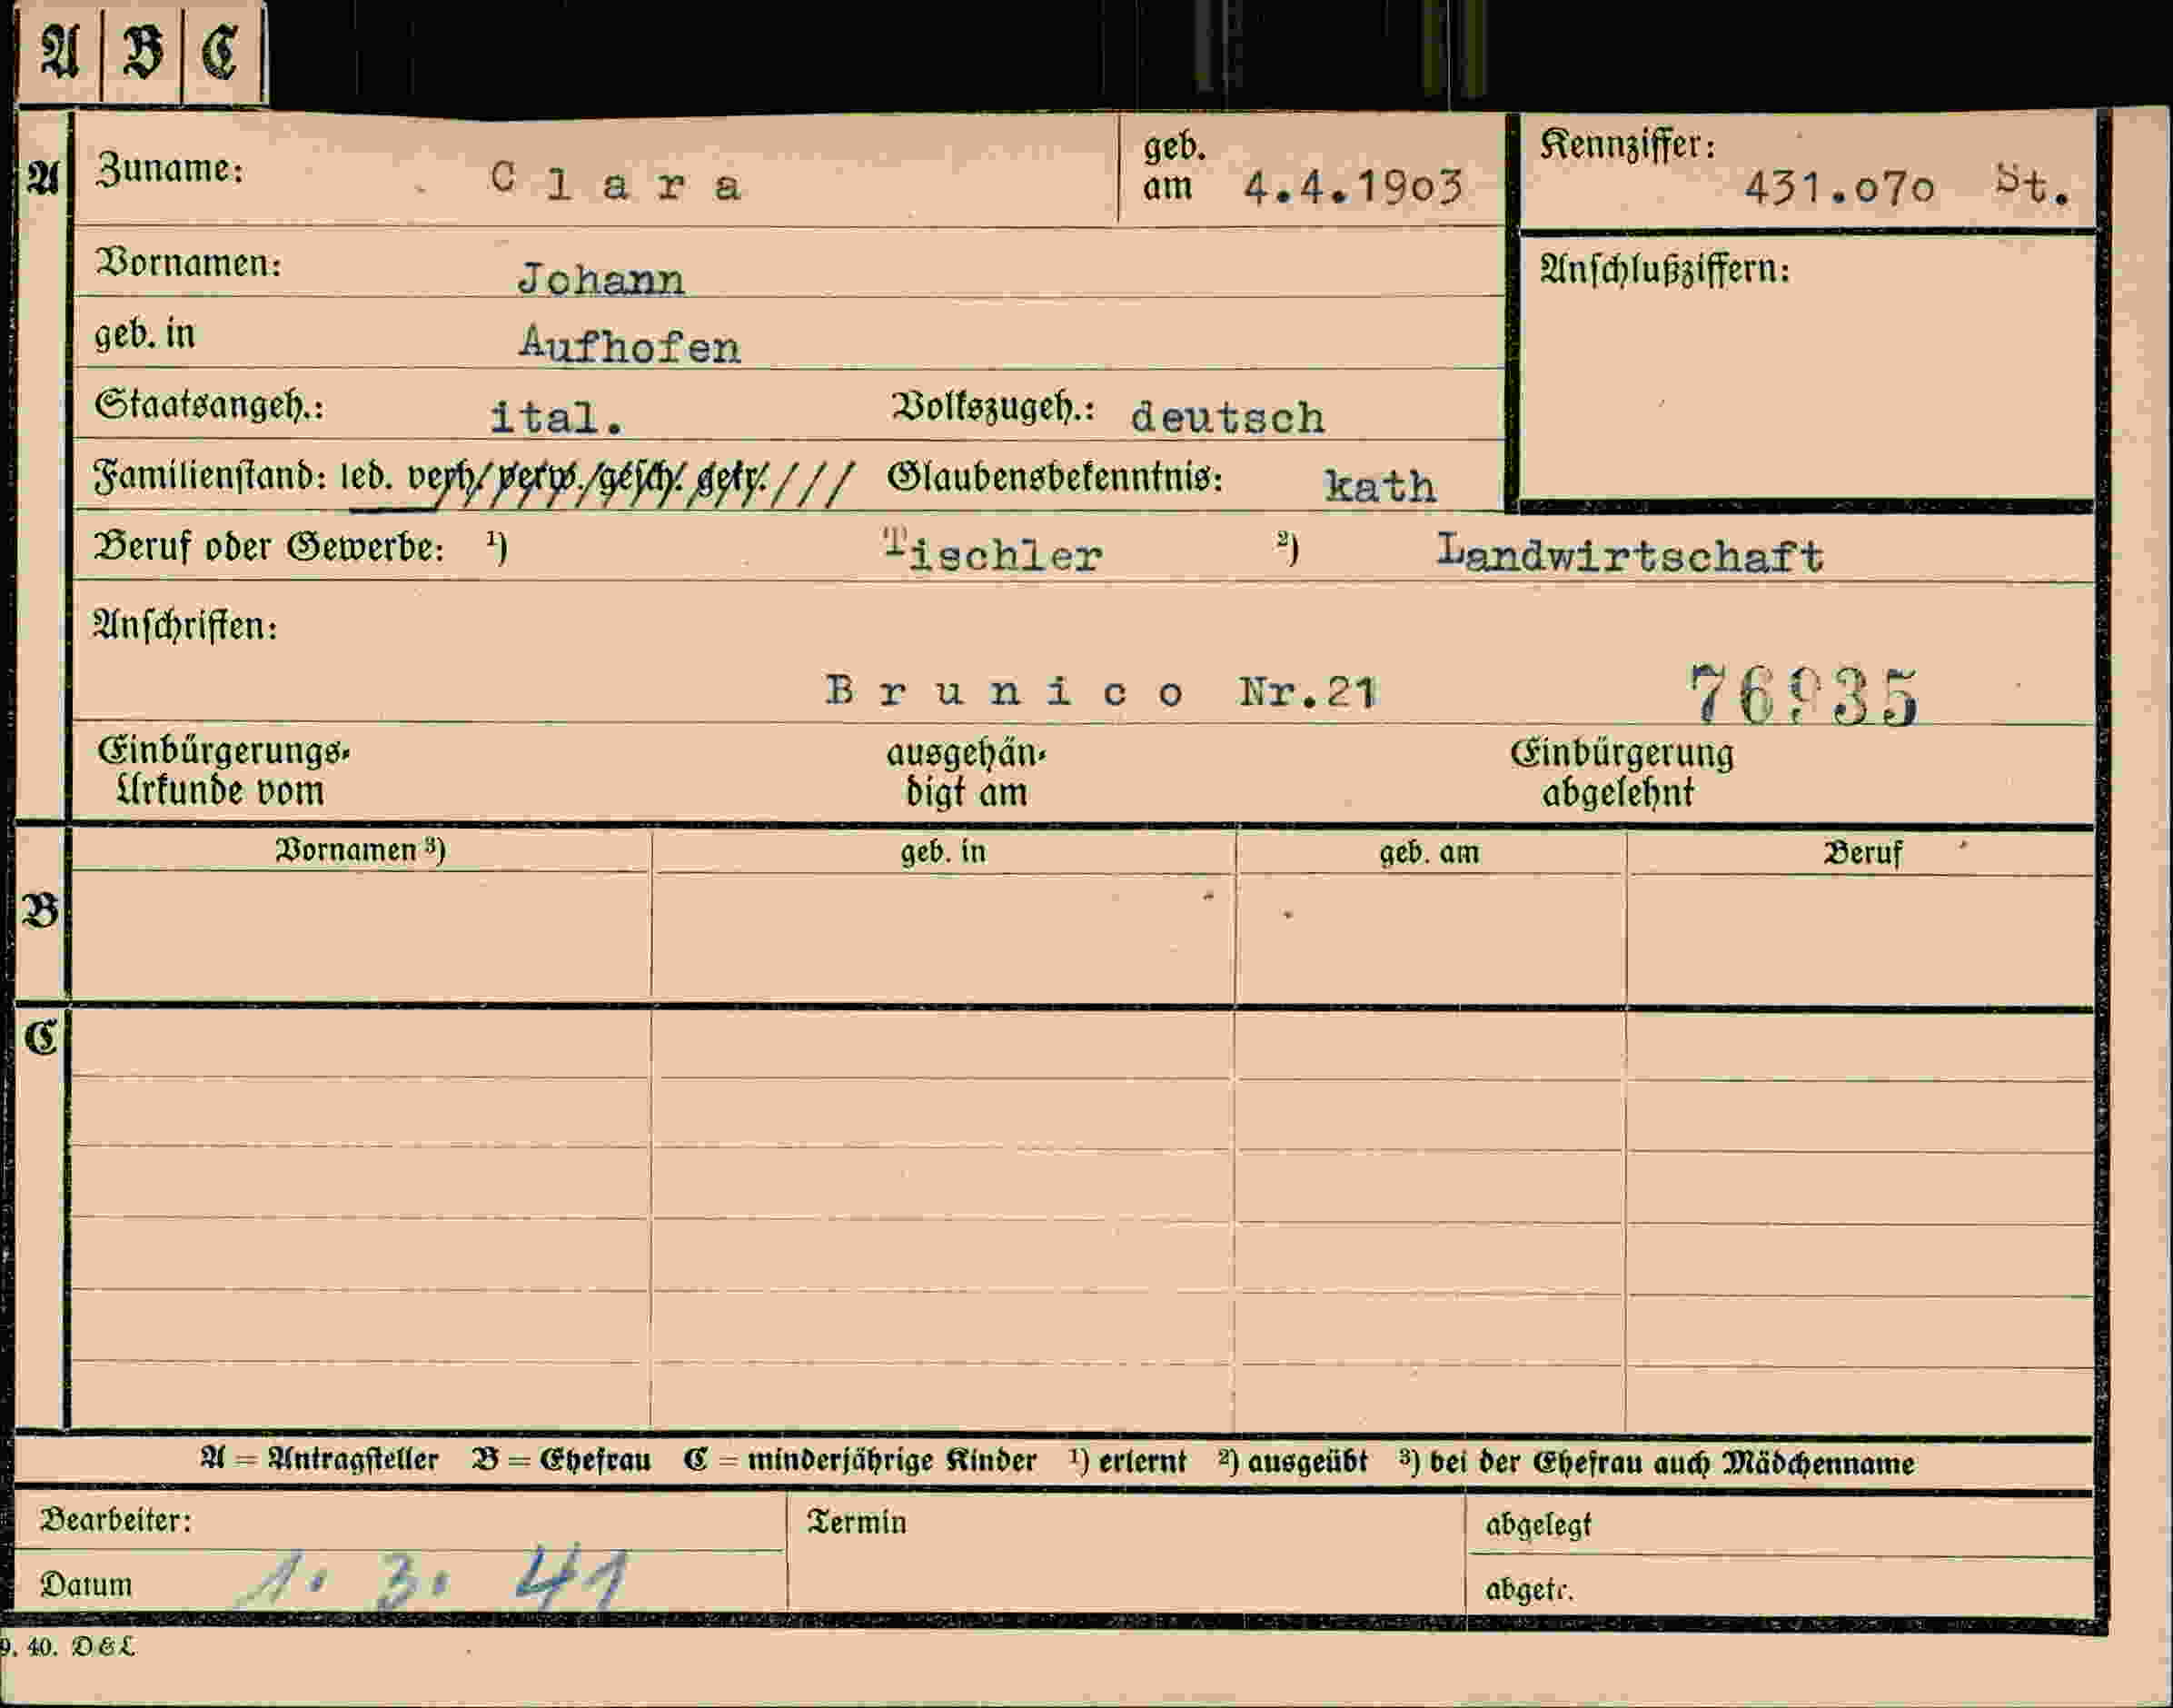 A B C
A Zuname: C l a r a geb. am 4.4.19o3 Kennziffer: 431.o7o St.
Vornamen: Johann Anschlußziffern:
geb. in Aufhofen
Staatsangeh.: ital. Volkszugeh.: deutsch
Familienstand: led. verh/ verw./gesch/. getr./ / / / Glaubensbekenntnis: kath
Beruf oder Gewerbe: ¹) Tischler ²) Landwirtschaft
Anschriften:
B r u n i c o Nr.21 76935
Einbürgerungs- ausgehän- Einbürgerung
Urkunde vom digt am abgelehnt
Vornamen ³) geb. in geb. am Beruf
B
C
A = Antragsteller B = Ehefrau C = minderjährige Kinder ¹) erlernt ²) ausgeübt ³) bei der Ehefrau auch Mädchenname
Bearbeiter: Termin abgelegt
Datum 1. 3. 41 abgetr.
9. 40. D & L